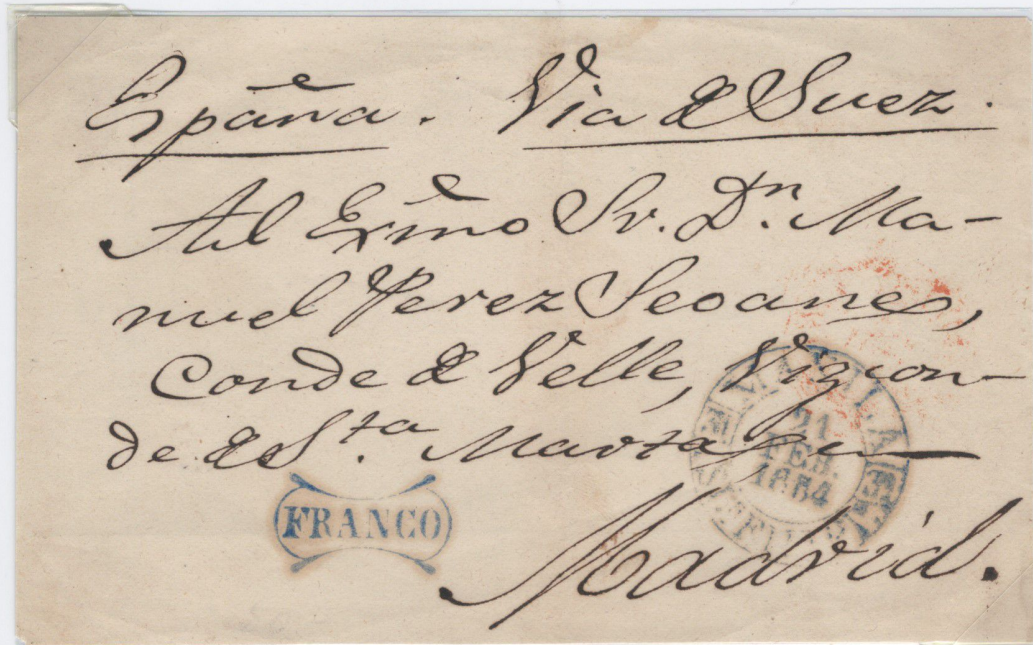 España. Via de Suez.
Al Exmo Sr. Dn. Ma-
nuel Perez Seoane,
Conde de Velle, Vizcon-
de de Sta. Marta
Madrid.
FRANCO
MANILA
21
FEB.
1854